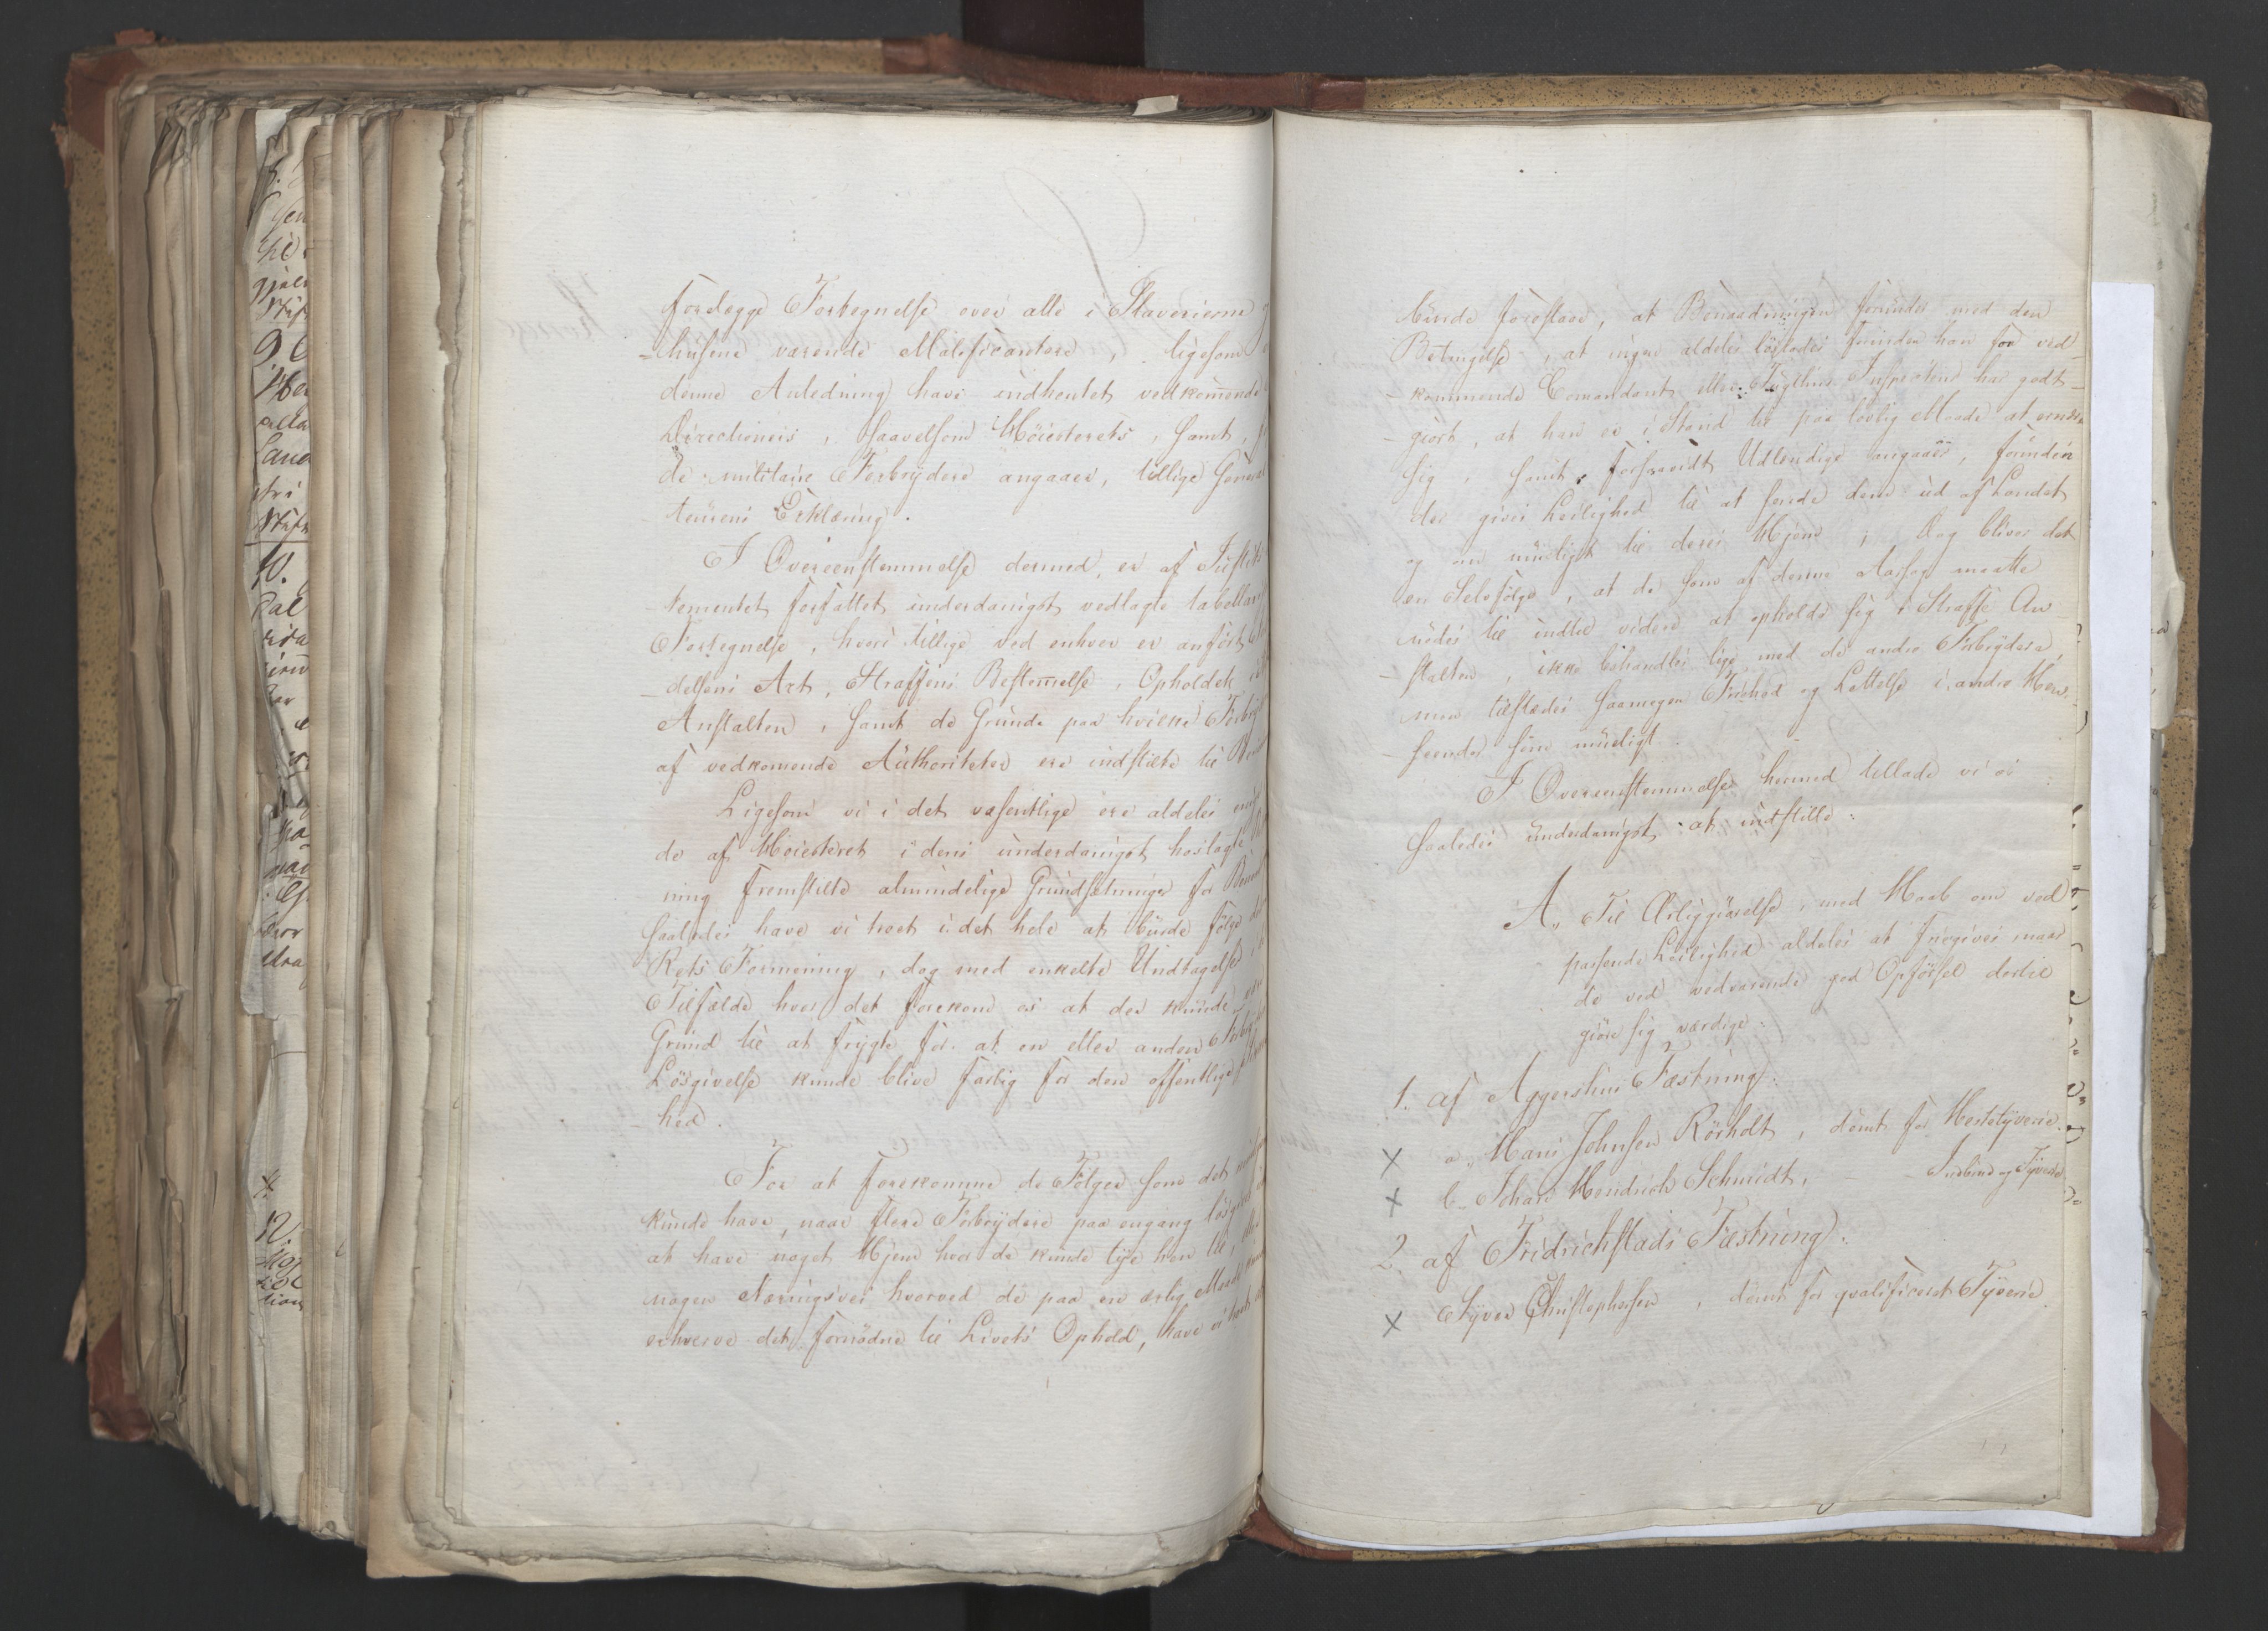 forelægge Fortegnelse over alle i Slaverierne
-husene værende Malificantere, ligesom
denne Anledning have indhentet vedkommende
Directioners, saavelsom Höiesterets, samt,
de militaire Forbrydere angaaer, tillige General
teurens Erklæring.
I Overeensstemmelse dermed, er af Justits
tementet forfattet underdanigst vedlagte tabellar
Fortegnelse, hvori tillige ved enhver er anfört
-delsens Art, Straffens Bestemelse, Opholdet i
Anstalten, samt de Grunde paa hvilke Forbry
af vedkomende Authoriteter ere indstilte til Be
Ligesom vi i det væsentlige ere aldeles enig
de af Höiesteret i dens underdanigst hoslagte
ning fremstilte almindelige Grundsætninger for Benaad
saaledes have vi troet i det hele at burde fölge det
Rets Formening, dog med enkelte Undtagelser,
Tilfælde hvor det forekom os at der kunde være
Grund til at frygte for at en eller anden Forbry
Lösgivelse kunde blive farlig for den offentlige
hed.
For at forekomme de Fölger som det
kunde have, naar flere Forbrydere paa engang lösgives
at have noget Hjem hvor de kunde tye hen til, eller
nogen Næringsvei hvorved de paa en ærlig Maade
erhverve det fornödne til Livets Ophold, have vi troet
burde foreslaae, at Benaadningen forundes med den
Betingelse, at ingen aldeles löslades forinden han for ved-
-kommende Comandant eller Tugthus Inspecteur har godt-
-giort, at han er i Stand til paa lovlig Maade at ernære
sig, samt, forsaavidt Udlændige angaaer, forinden
der gives Leilighed til at sende dem ud af Landet
og om mueligt til deres Hjem; Dog bliver det
en Selvfölge, at de som af denne Aarsag maatte
nödes til indtil videre at opholde sig i Straffe An-
-stalten, ikke behandles lige med de andre Forbrydere,
men tilstædes saamegen Friehed og Lettelse i andre Hen-
-seender som mueligt.
I Overeensstemmelse hermed tillade vi os
saaledes underdanigst at indstille:
A., Til Ærliggiörelse, med Haab om ved
passende Leilighed aldeles at friegives naar
de ved vedvarende god Opförsel dertil
giöre sig værdige:
1. af Aggershuus Fæstning:
X a., Hans Johnsen Rörholt, dömt for Hestetyverie.
X b., Johan Hendrich Schmidt, - Indbrud og Tyverie
2. af Fridrichstads Fæstning:
X Syver Christophersen, dömt for qvalificeret Tyverie.